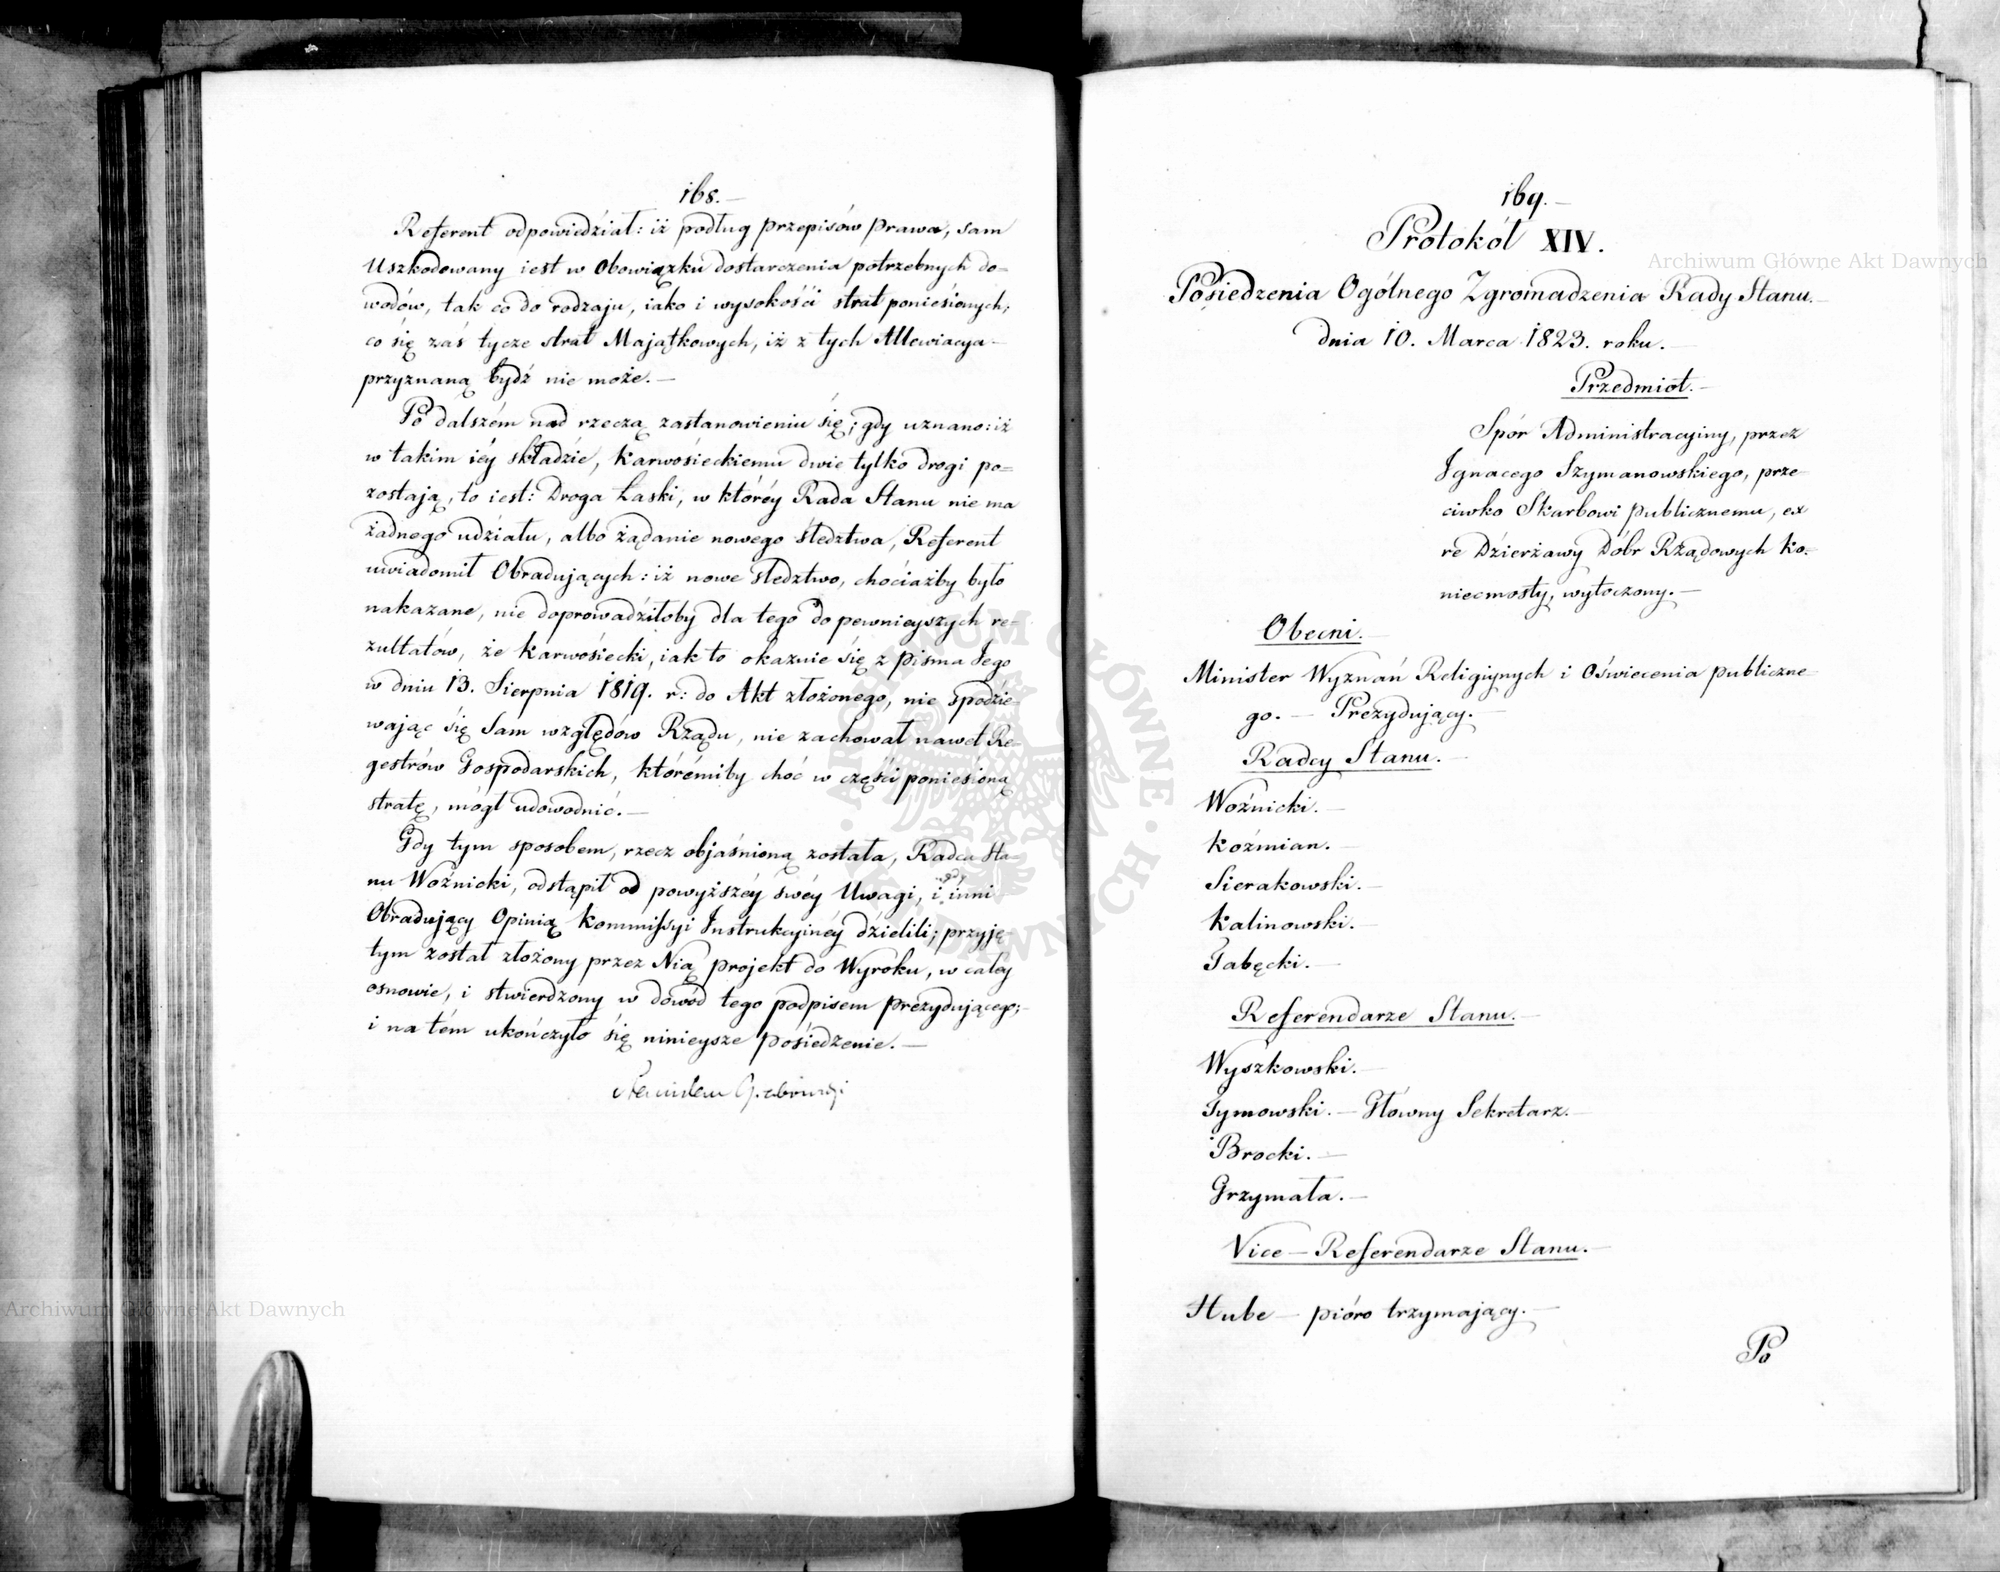 168.
Referent odpowiedział: iż podług przepisów prawa, sam
Uszkodowany iest w Obowiązku dostarczenia potrzebnych do-
wodów, tak co do rodzaju, iako i wysokości strat poniesionych;
co się zaś tycze strat Majątkowych, iż z tych Allewiacya
przyznaną bydź nie może.—
Po dalszém nad rzeczą zastanowieniu się; gdy uznano: iż
w takim iéy składzie, Karwosieckiemu dwie tylko drogi po-
zostają, to iest: Droga Łaski, w któréy Rada Stanu nie ma
żadnego udziału, albo żądanie nowego śledztwa, Referent
uwiadomił Obradujących: iż nowe śledztwo, chociażby było
nakazane, nie doprowadziłoby dla tego do pewnieyszych re-
zultatów, że Karwosiecki, iak to okazuie się z pisma Jego
w dniu 13. Sierpnia 1819. r: do Akt złożonego, nie spodzie-
wając się Sam względów Rządu, nie zachował nawet Re-
gestrów Gospodarskich, którémiby choć w części poniesioną
stratę, mógł udowodnić.—
Gdy tym sposobem, rzecz objaśnioną została, Radca Sta-
nu Woźnicki, odstąpił od powyższéy swéy Uwagi, i gdy inni
Obradujący Opinią Kommissyi Instrukcyinéy dzielili; przyję-
tym został złożony przez Nią projekt do Wyroku, w całéy
osnowie, i stwierdzony w dowód tego podpisem prezydującego;
i na tém ukończyło się ninieysze posiedzenie.—
Stanisław Grabowski
169.
Protokół XIV.
Posiedzenia Ogólnego Zgromadzenia Rady Stanu.
dnia 10. Marca 1823. roku.—
Przedmiot.—
Spór Administracyiny, przez
Ignacego Szymanowskiego, prze-
ciwko Skarbowi publicznemu, ex
re Dzierżawy Dóbr Rządowych Ko-
niecmosty, wytoczony.—
Obecni.—
Minister Wyznań Religiynych i Oświecenia publiczne-
go.— Prezydujący.—
Radcy Stanu.—
Woźnicki.—
Koźmian.—
Sierakowski.—
Kalinowski.—
Tabęcki.—
Referendarze Stanu.—
Wyszkowski.—
Tymowski.— Główny Sekretarz.—
Brocki.—
Grzymała.—
Vice—Referendarze Stanu.—
Hube — pióro trzymający.—
Po
Archiwum Główne Akt Dawnych
Archiwum Główne Akt Dawnych
ARCHIWUM GŁÓWNE · AKT DAWNYCH ·